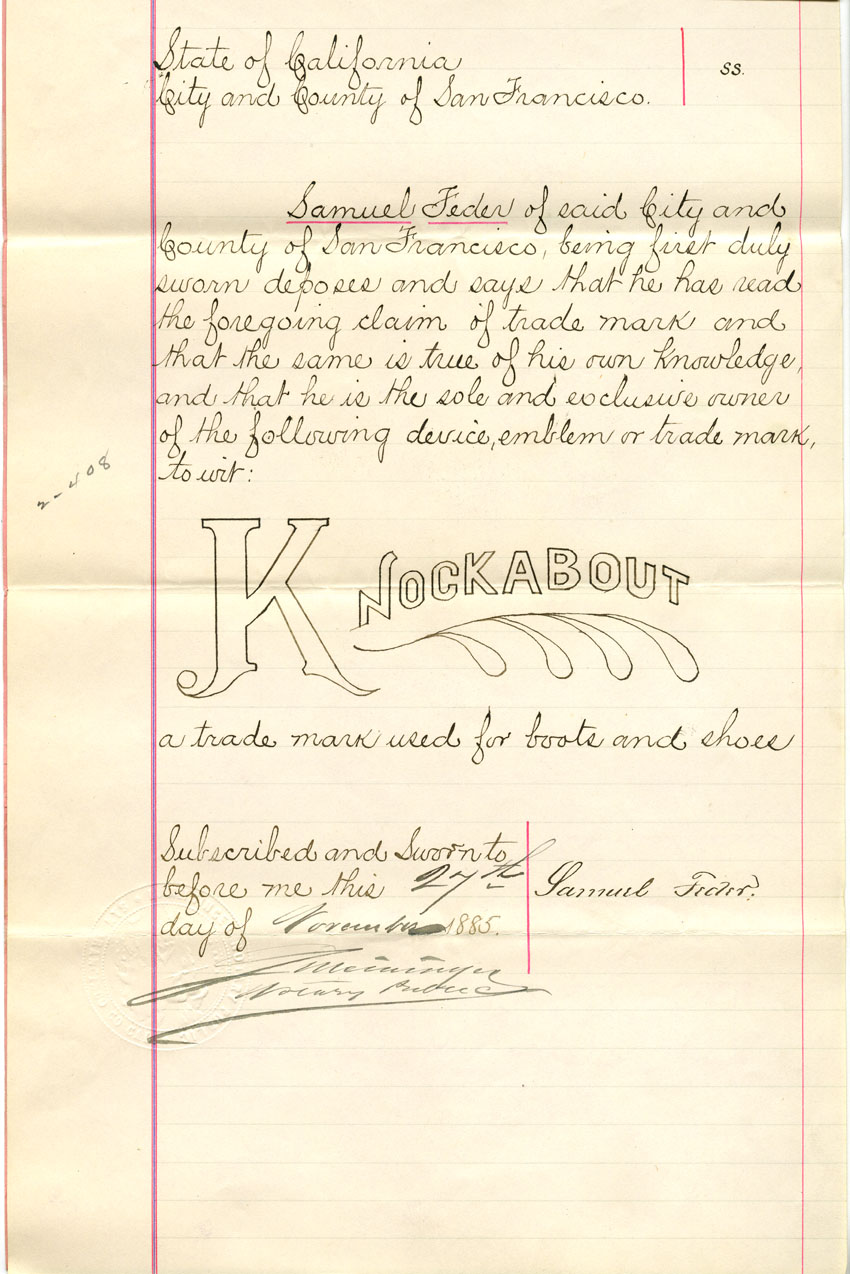 State of California
ss.
City and County of San Francisco.
Samuel Feder of said City and
County of San Francisco, being first duly
sworn deposes and says that he has read
the foregoing claim of trade mark and
that the same is true of his own knowledge,
and that he is the sole and exclusive owner
of the following device, emblem or trade mark,
to wit:
2-408
KNOCKABOUT
a trade mark used for boots and shoes
Subscribed and Sworn to
before me this 27th
day of November 1885.
Samuel Feder.
Notary Public